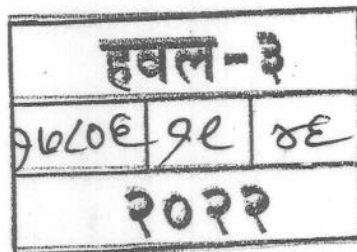 हवल-३
१७८०६ १९ ४६
२०२२